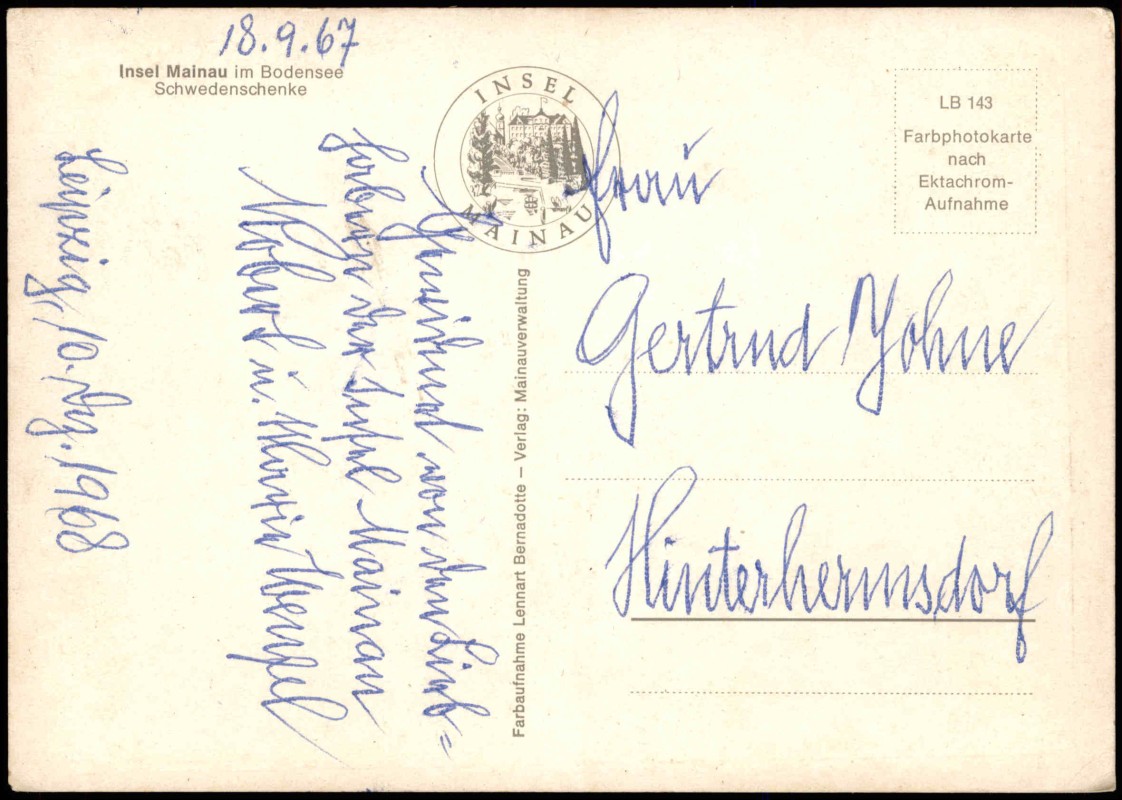 18.9.67
Insel Mainau im Bodensee
Schwedenschenke
INSEL
MAINAU
LB 143
Farbphotokarte
nach
Ektachrom-
Aufnahme
Frau
Gertrud Johne
Hinterhermsdorf
Farbaufnahme Lennart Bernadotte – Verlag: Mainauverwaltung
Gewidmet von den Lieb=
habern der Insel Mainau
Robert u. Maria
Leipzig, 10. 1968